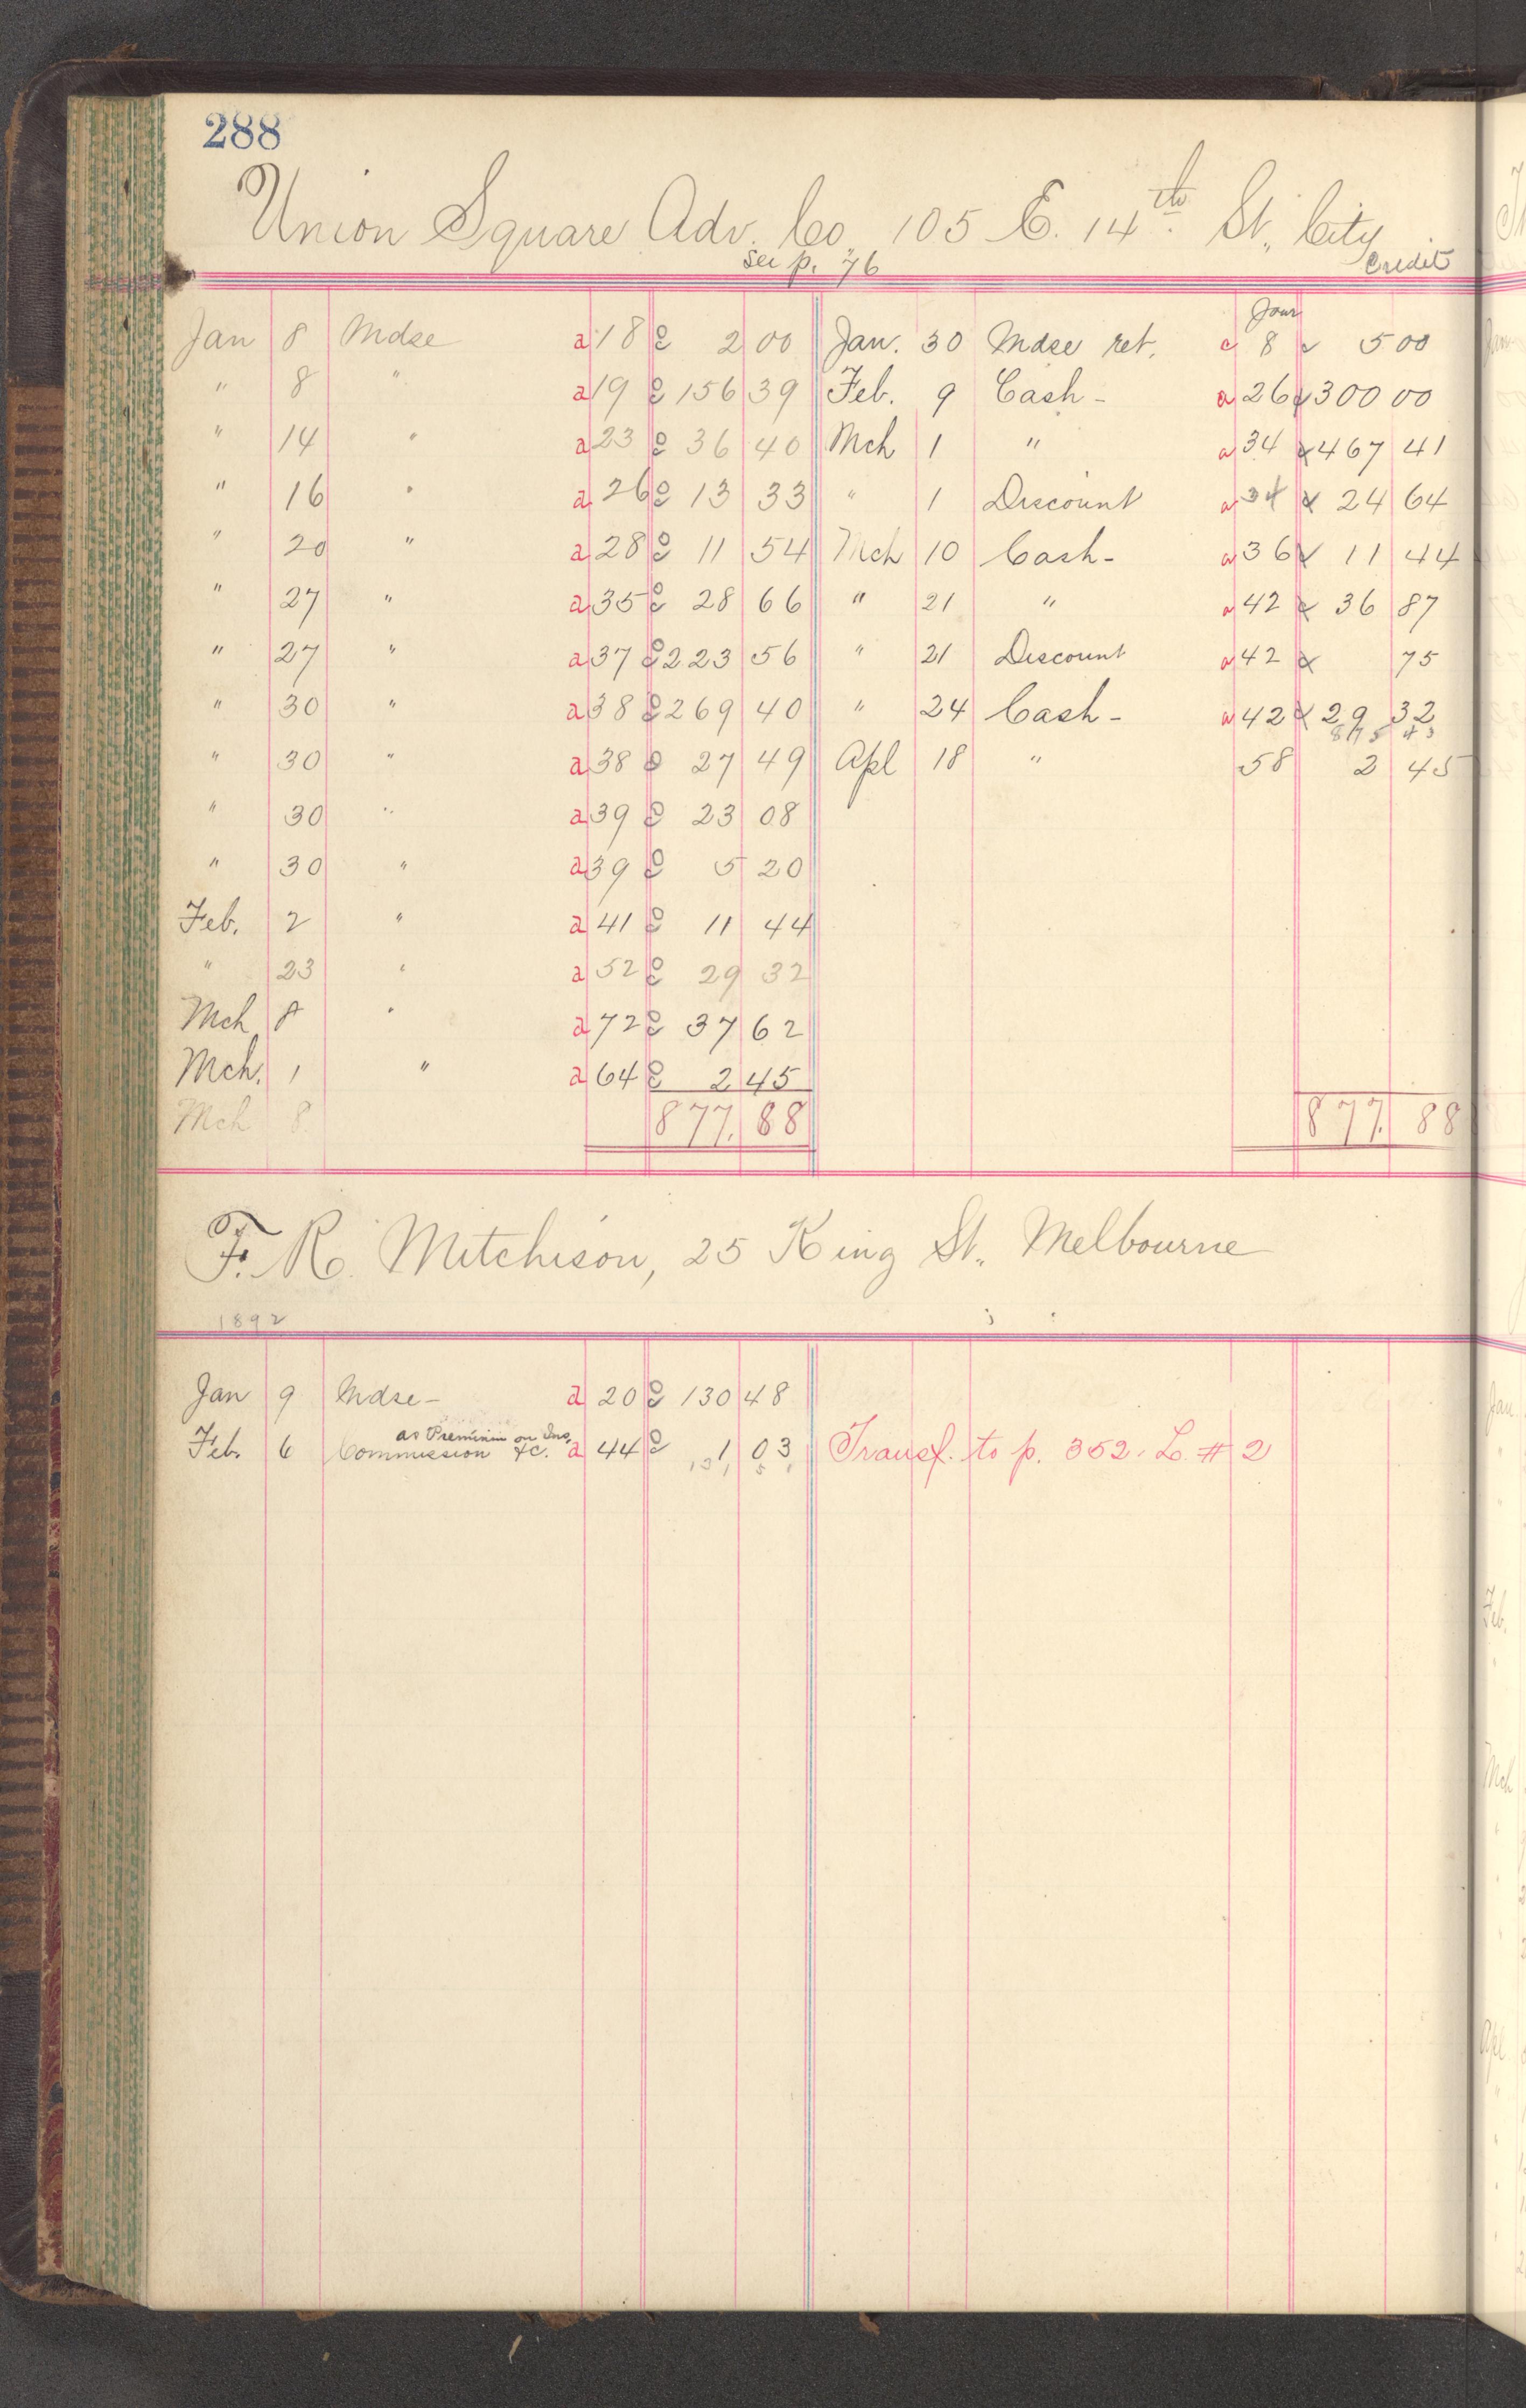 288
Union Square Adv. Co. 105 E. 14th St., City
See p. 76 Credit
Jour
Jan 8 Mdse a 18 2 00 Jan. 30 Mdse ret. 8 5 00
" 8 " a 19 156 39 Feb. 9 Cash - a 26 300 00
" 14 " a 23 36 40 Mch 1 " a 34 467 41
" 16 " a 26 13 33 " 1 Discount a 34 24 64
" 20 " a 28 11 54 Mch 10 Cash - a 36 11 44
" 27 " a 35 28 66 " 21 " a 42 36 87
" 27 " a 37 223 56 " 21 Discount a 42 75
" 30 " a 38 269 40 " 24 Cash - a 42 29 32
875 43
" 30 " a 38 27 49 Apl 18 " 58 2 45
" 30 " a 39 23 08
" 30 " a 39 5 20
Feb. 2 " a 41 11 44
" 23 " a 52 29 32
Mch 8 " a 72 37 62
Mch. 1 " a 64 2 45
Mch 8. 877. 88 877. 88
F. R. Mitchison, 25 King St., Melbourne
1892
Jan 9 Mdse - a 20 130 48
as Premium on Ins,
Feb. 6 Commission &c. a 44 1 03 Transf. to p. 352. L. # 2
131 51